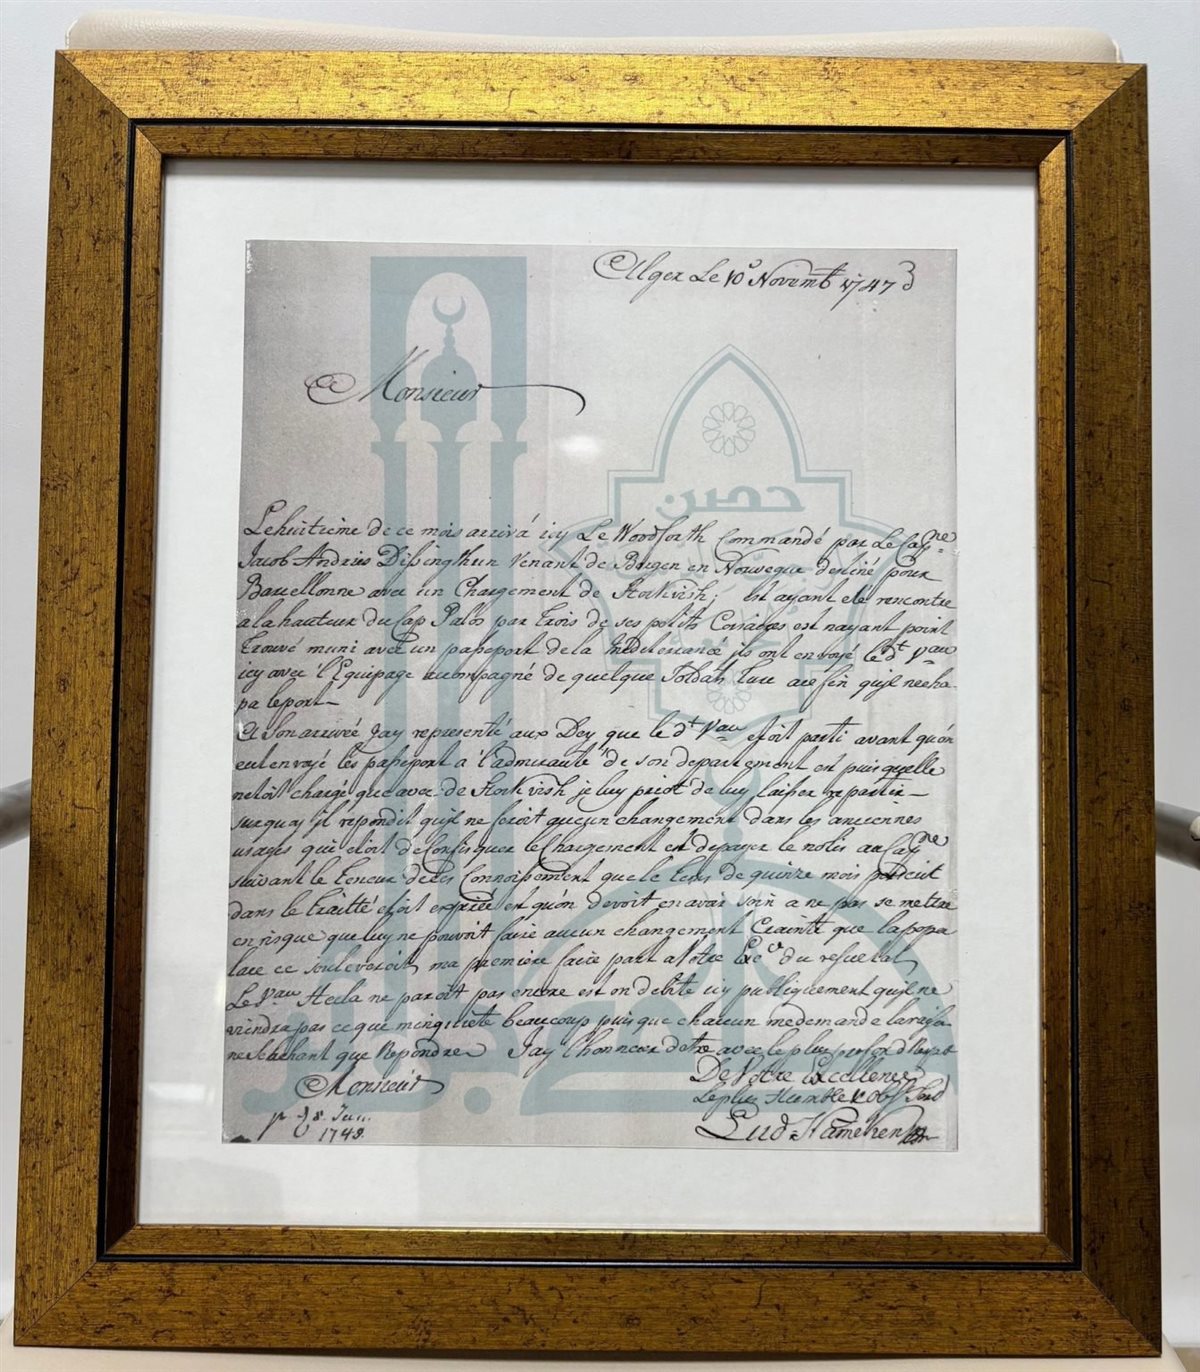 Alger Le 10.e Novemb 1747
Monsieur
Le huitieme de ce mois arriva icy Le Woodforth Commandé par Le Cap.ne
Jacob Andries venant de Bergen en Norwegue destiné pour
Barcellonne avec un Chargement de Stockvish; est ayant eté rencontre
a la hauteur du Cap Palos par trois de ses petits Corsaires est nayant point
trouvé muni avec un passeport de la Mediteranée ils ont envoyé le d.t Vau
icy avec l'Equipage accompagné de quelque Soldats Turc afin quil necha
pa lepont
A son arrivée Jay representé aux Dey que le d.t Vau estoit parti avant qu'on
eut envoyé les passeport à l'admirauté de son departement est puis quelle
netoit chargé que avec de Stockvish je luy prioit de luy laisser repartir
surquoy il repondit quil ne feroit aucun changement dans les anciennes
usages qui etoit de Confisquer le Chargement et de payer le nolis au Cap.ne
suivant le teneur de les Connoissement que le tems de quinze mois
dans le traitté etoit expirée est qu'on devoit en avoir soin a ne pas se mettre
en risque que luy ne pouvoit faire aucun changement Crainte que la popu
lace ce souleveroit, ma premiere faire part a Votre Exc.ce du resultat,
Le Vau Hecla ne paroit pas encore est on debite icy publiquement quil ne
viendra pas ce que minquiete beaucoup puis que chacun me demande la raison
ne sachant que Repondre Jay l'honneur detre avec le plus profond Respect
Monsieur
De Votre Excellence
Le plus Humble & Obs.t Serv
p. 28. Jan.
1748.
Lud Hameken
حصن